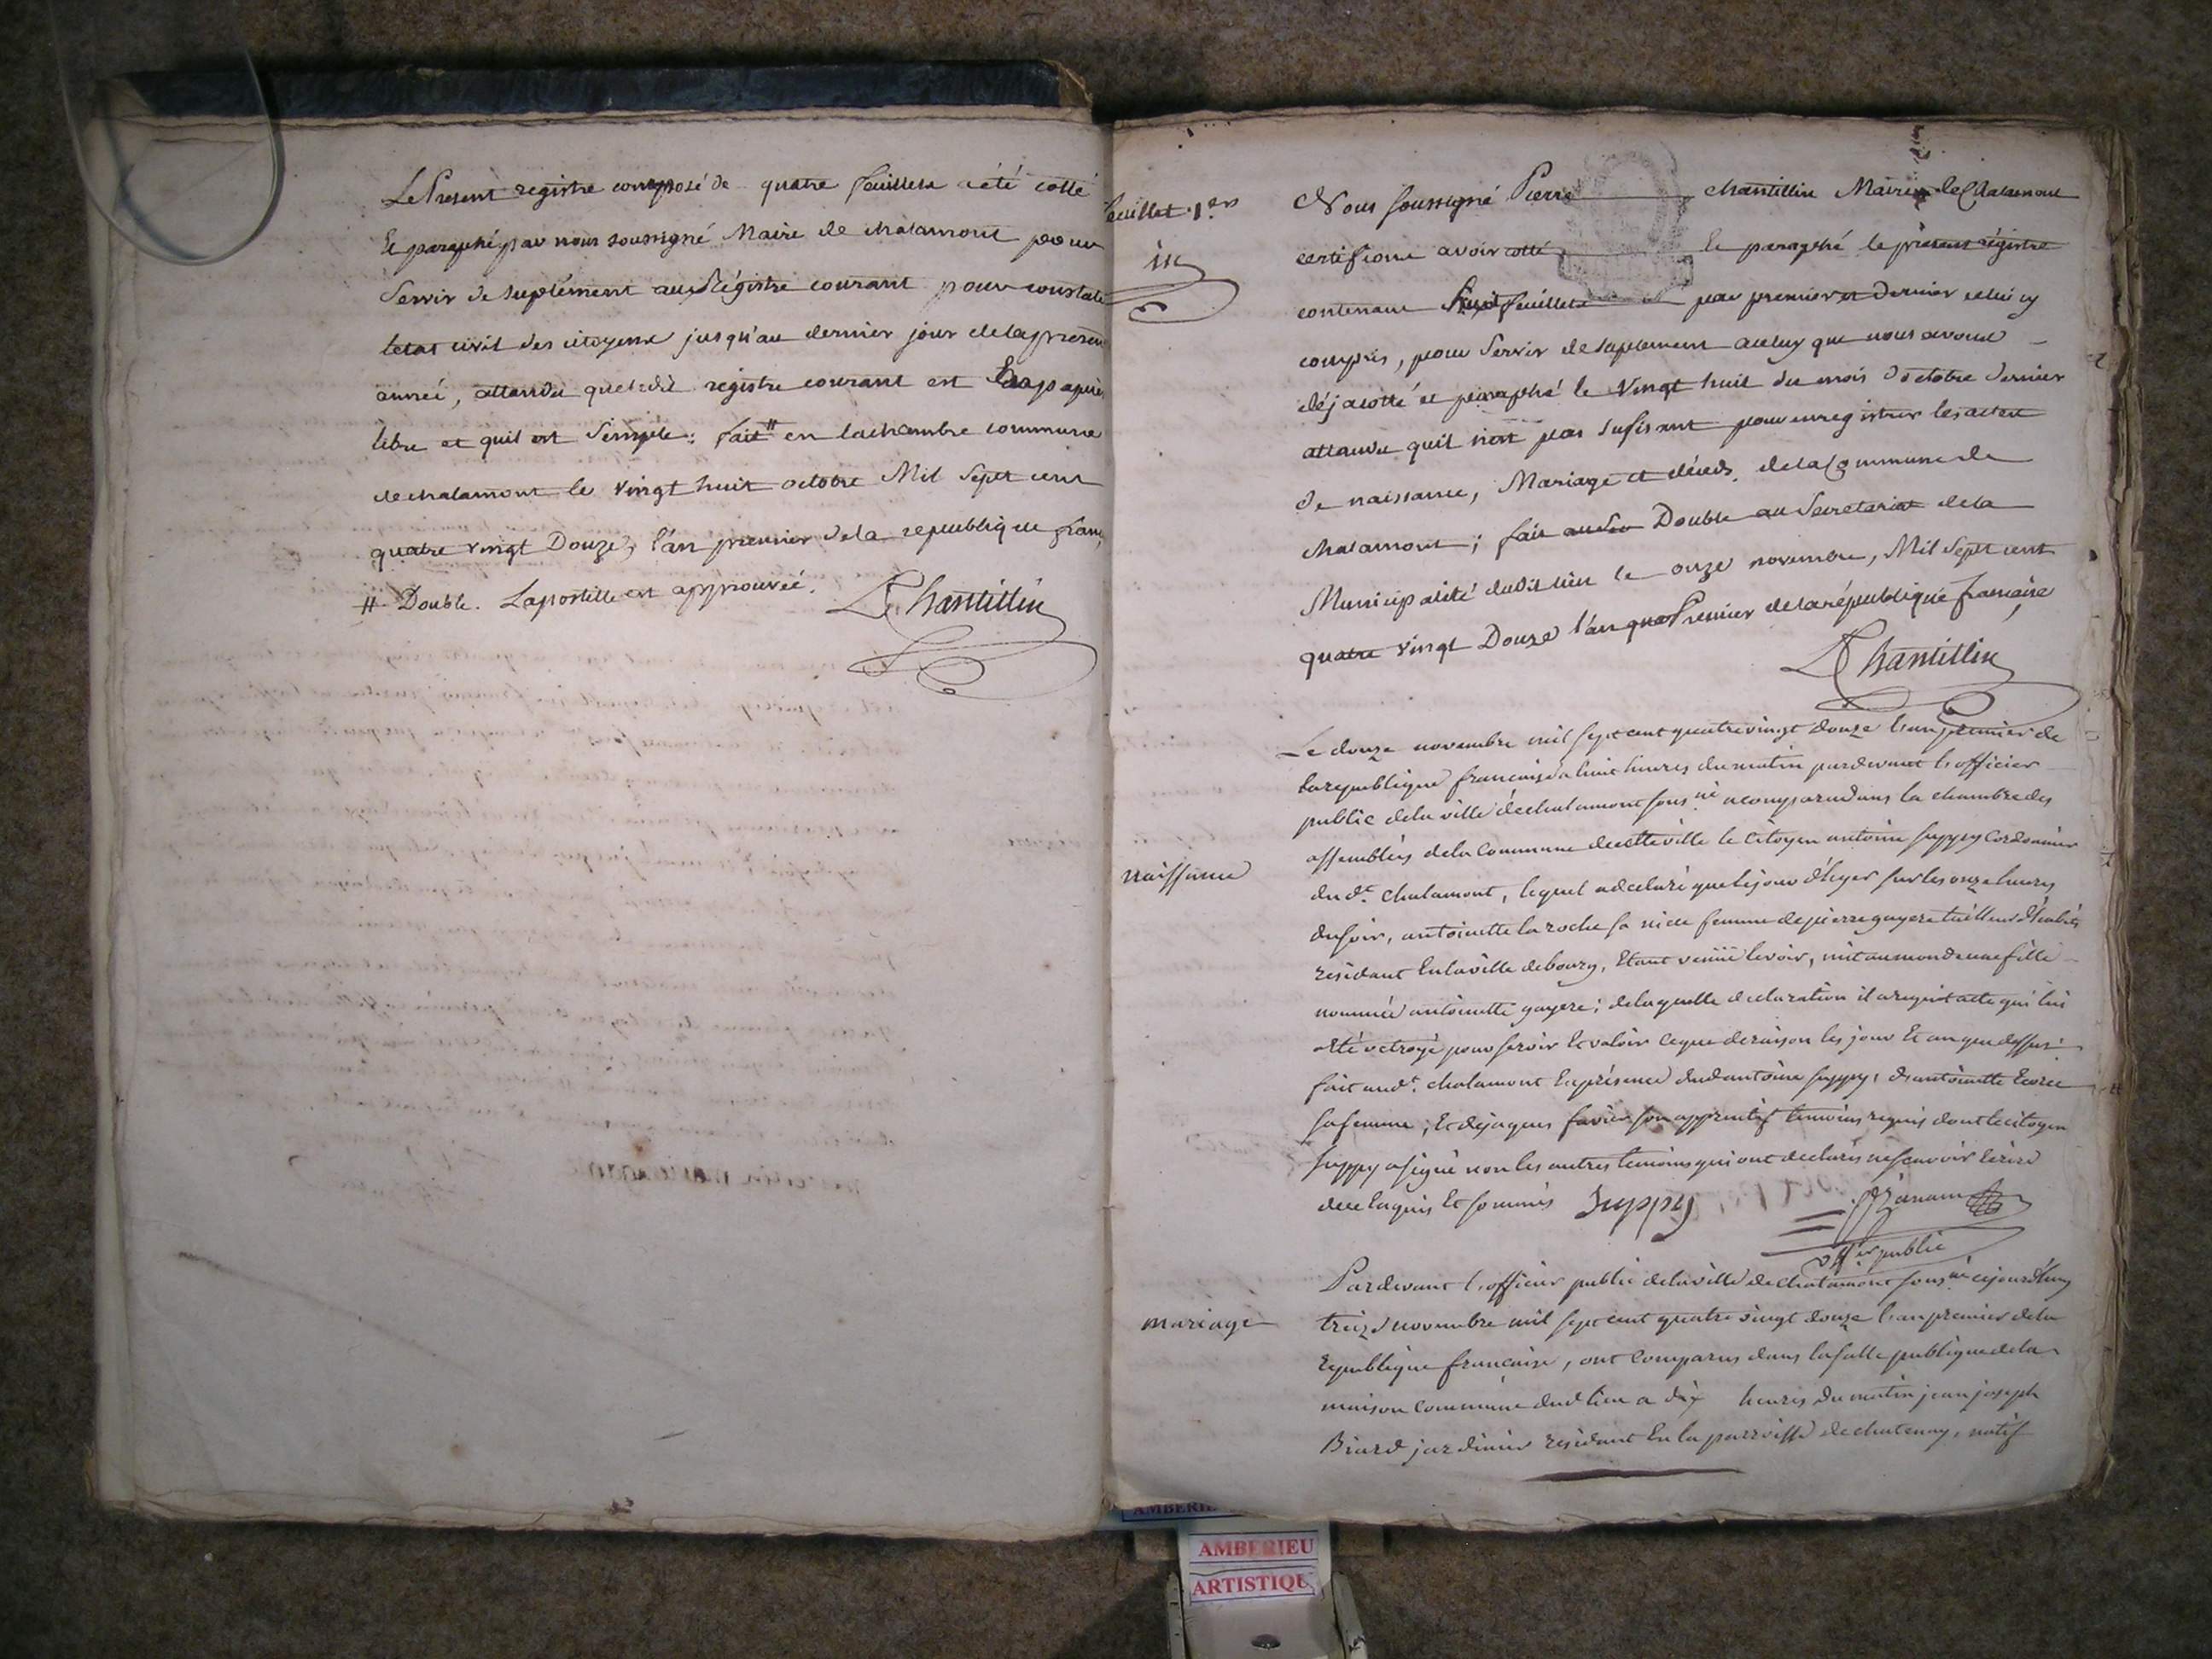 Le Present registre composé de quatre feuillets a été cotté
Et paraphé par nous soussigné Maire de chalamont pour
Servir de Suplément au Régistre courant pour constater
létat civil des citoyens jusqu'au dernier jour de la presente
année, attendu que ledit registre courant est papier
libre et quil est Simple : fait # en la chambre commune
de chalamont le vingt huit octobre Mil Sept cent
quatre vingt Douze, l'an premier de la republique franç
# Double. Lapostille est approuvée. Chantillin
feuillet 1er
Nous soussigné Pierre chantillin Maire de Chalamont
certifions avoir cotté et paraphé le présent régistre
contenant huit feuillets par premier et Dernier celui cy
compris, pour Servir de suplement à celuy que nous avons
déja cotté et paraphé le vingt huit du mois doctobre dernier
attendu quil nest pas sufisant pour enregistrer les actes
de naissance, Mariage et décès de la Commune de
chalamont ; fait Double au Secretariat de la
Municipalité dudit lieu le onze novembre, Mil Sept cent
quatre vingt Douze l'an Premier de la république française
Chantillin
naissance
Le douze novembre mil sept cent quatre vingt douze l'an premier de
la republique francaise a huit heures du matin pardevant l'officier
public de la ville de chalamont sous né a comparu dans la chambre des
assemblées de la Commune de cette ville le Citoyen antoine suppy Cordonnier
du dt. chalamont, lequel a declaré que le jour d'hyer sur les onze heures
du soir, antoinette la roche sa niece femme de pierre guyere tailleur d'habits
residant En la ville de bourg, Etant venüe le voir, mit au monde une fille
nommée antoinette guyere ; de laquelle declaration il a requis acte qui lui
a Eté octroyé pour servir Et valoir ce que de raison les jour Et an que dessus
fait aud. chalamont En présence dud antoine suppy, d'antoinette
sa femme, Et de jaques favier son apprentif temoins requis dont le citoyen
suppy a signé non les autres temoins qui ont declarés ne scavoir Ecrire
de ce Enquis Et sommés Suppy
off.er public
mariage
Pardevant l'officier public de la ville de chalamont sous né cejourd'huy
treize novembre mil sept cent quatre vingt douze l'an premier de la
Republique francaise, ont Comparus dans la salle publique de la
maison Commune dud lieu a dix heures du matin jean joseph
Biard jardinier residant En la parroisse de chatenay, natif
AMBERIEU
ARTISTIQU